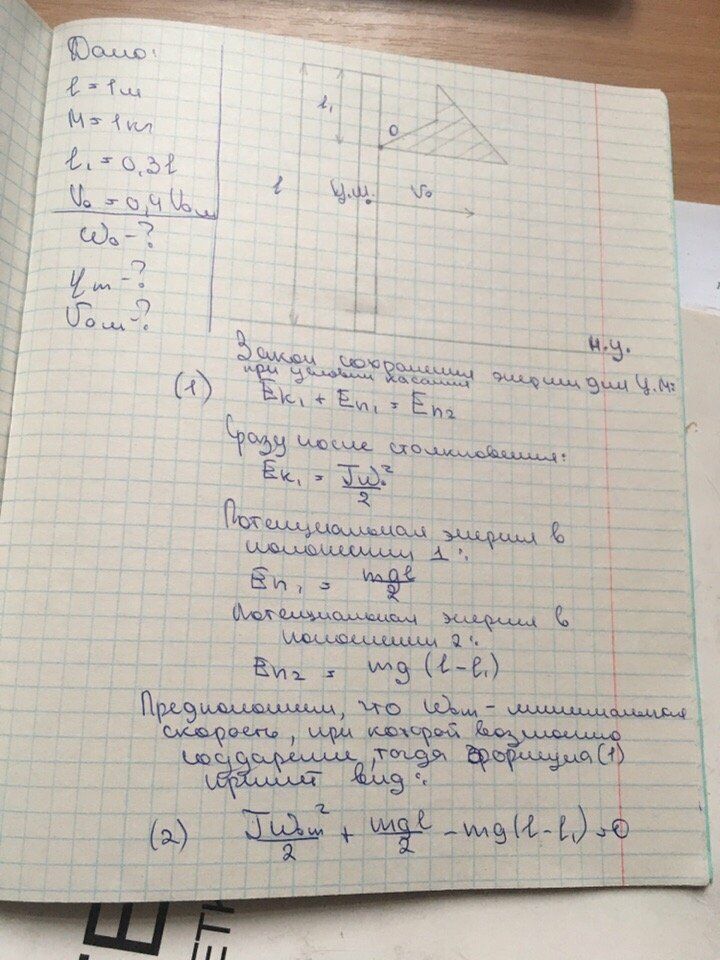 Дано:
l = 1м
M = 1кг
l₁ = 0,3l
V₀ = 0,4V₀м
ω₀ - ?
φm - ?
V₀м - ?
l₁
O
l
Ц.М.
V₀
н.у.
Закон сохранения энергии для Ц.М:
при условии касания
(1) Eк₁ + Eп₁ = Eп₂
Сразу после столкновения:
Eк₁ = Jω₀²/2
Потенциальная энергия в
положении 1:
Eп₁ = mgl/2
Потенциальная энергия в
положении 2:
Eп₂ = mg(l-l₁)
Предположим, что ω₀m - минимальная
скорость, при которой возможно
соударение, тогда формула (1)
примет вид:
(2) Jω₀m²/2 + mgl/2 - mg(l-l₁) = 0